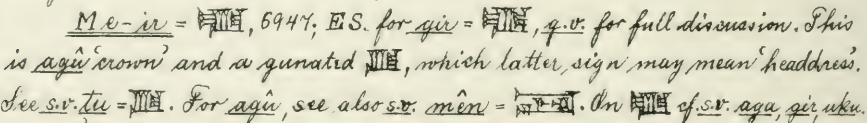 Me-ir = , 6947; ES. for gir = , q.v. for full discussion. This
is agû 'crown' and a gunated , which latter sign may mean 'headdress'.
See s.v. tu = . For agû, see also s.v. mên = . On cf. s.v. aga, gir, uku.